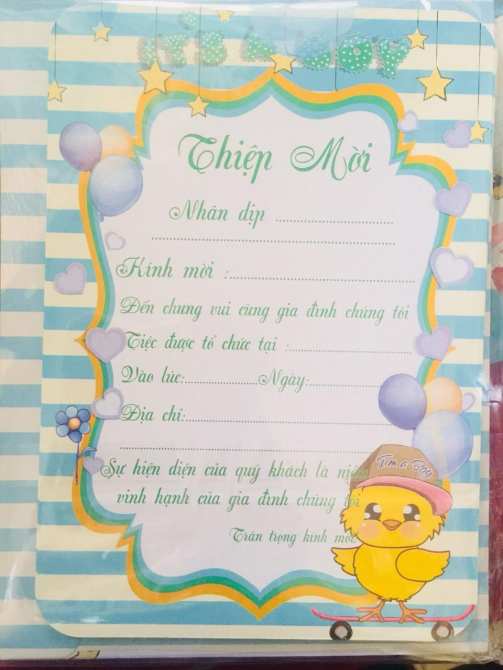 IT'S A BOY
Thiệp Mời
Nhân dịp ........................
................................................
Kính mời : ........................
Đến chung vui cùng gia đình chúng tôi
Tiệc được tổ chức tại : ........................
Vào lúc:...............Ngày:...............
Địa chỉ:................................................
................................................
Sự hiện diện của quý khách là niềm
vinh hạnh của gia đình chúng tôi
Trân trọng kính mời
I'm a boy